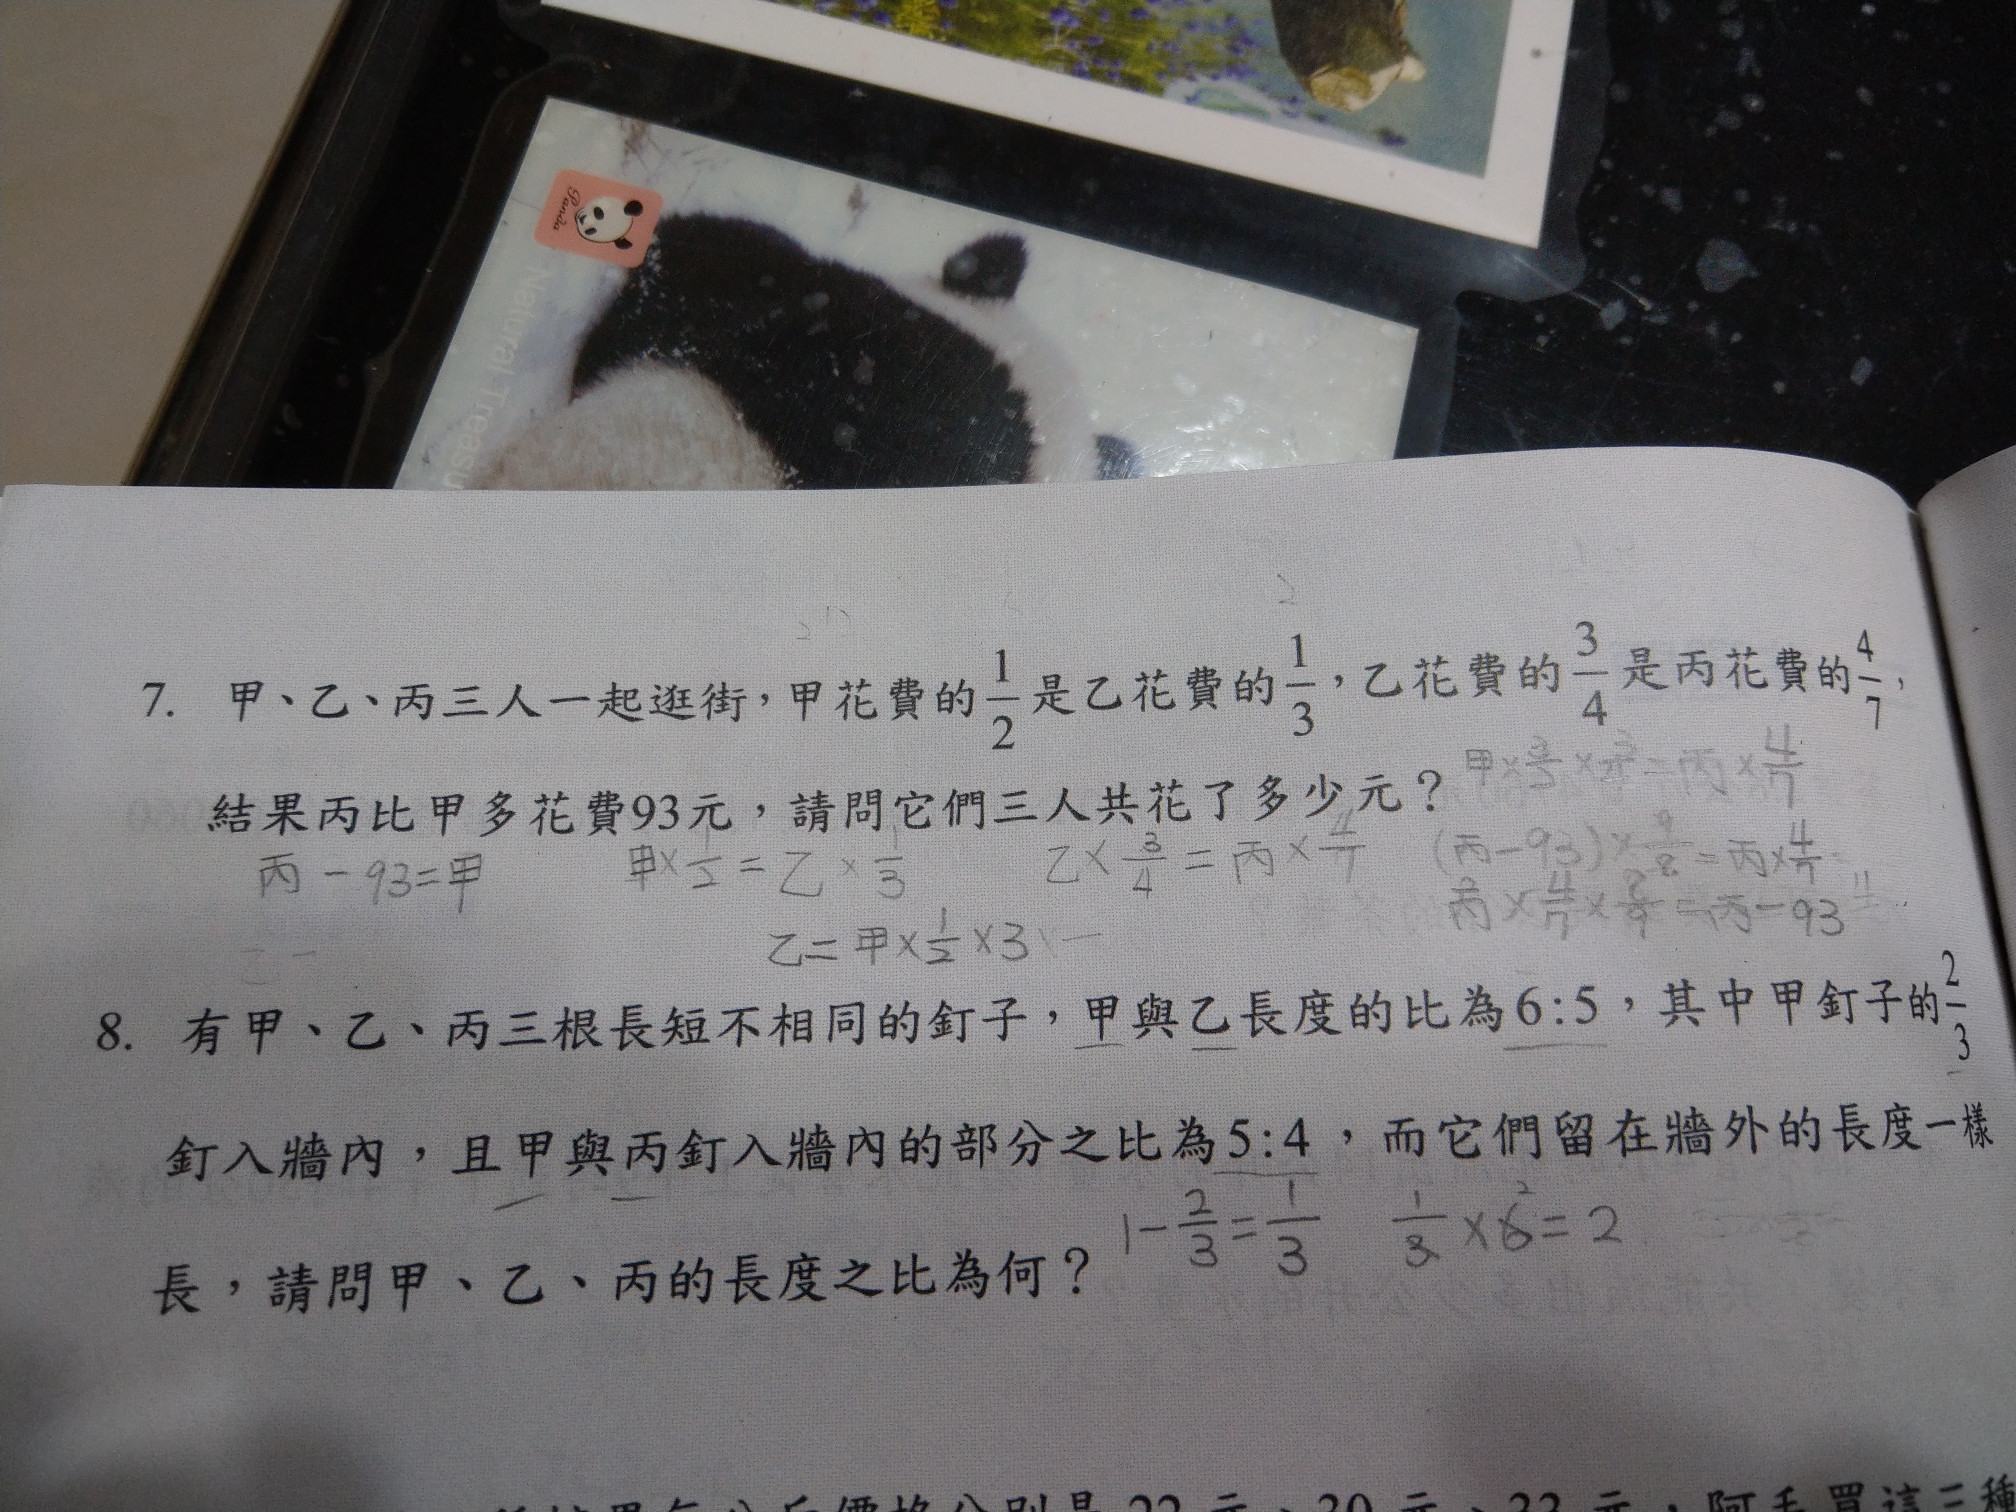 Panda
Natural Treasu
7. 甲、乙、丙三人一起逛街，甲花費的1/2是乙花費的1/3，乙花費的3/4是丙花費的4/7，
結果丙比甲多花費93元，請問它們三人共花了多少元？
甲×3/2×3/4=丙×4/7
丙-93=甲
甲×1/2=乙×1/3
乙×3/4=丙×4/7
(丙-93)×9/8=丙×4/7
乙=甲×1/2×3
丙×4/7×8/9=丙-93
8. 有甲、乙、丙三根長短不相同的釘子，甲與乙長度的比為6:5，其中甲釘子的2/3
釘入牆內，且甲與丙釘入牆內的部分之比為5:4，而它們留在牆外的長度一樣
長，請問甲、乙、丙的長度之比為何？
1-2/3=1/3
1/3×6=2